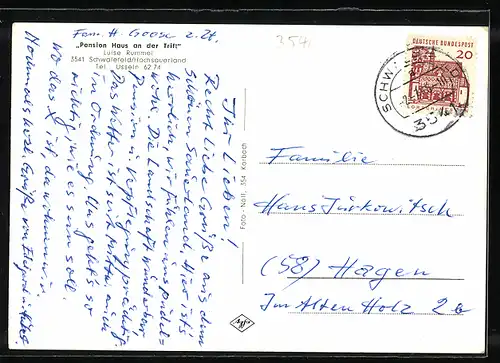 Fam. H. Goose z. Zt.
„Pension Haus an der Trift"
Luise Rummel
3541 Schwalefeld/Hochsauerland
Tel. Usseln 62 74
Ihr Lieben!
Recht liebe Grüße aus dem
schönen Sauerland. Hier ist's
herrlich, wir fühlen uns pudel-
wohl. Die Landschaft wunderbar
Pension u. Verpflegung prächtig.
Das Wetter ist seit Mittw. auch
in Ordnung. Uns geht's so
richtig, wie es sein soll.
wo das X ist, da wohnen wir
Nochmals herzl. Grüße von
354
Foto - Nolt, 354 Korbach
DEUTSCHE BUNDESPOST
20
SCHW
Familie
Hans Jürkowitsch
(58) Hagen
Im Alten Holz 2a